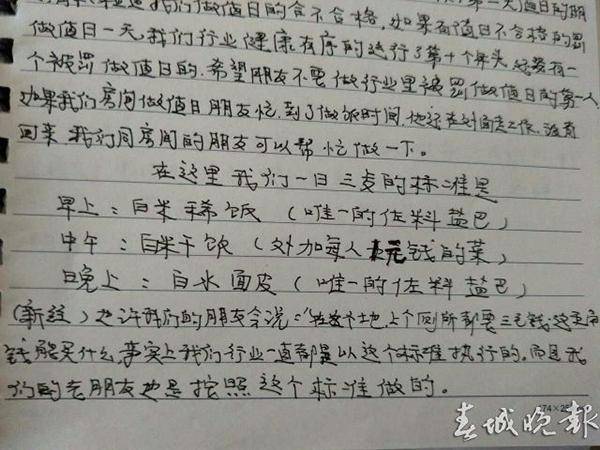 我们做值日的合不合格,如果有值日不合格的罚
做值日一天,我们行业健康有序的运行了第十个年头,还没有一
个被罚做值日的,希望朋友不要做行业里被罚做值日的第一人
如果我们房间做值日朋友忙,到了做饭时间,他还在对面走工作,没有
回来,我们同房间的朋友可以帮忙做一下。
在这里我们一日三支的标准是
早上:白米稀饭(唯一的佐料盐巴)
中午:白米干饭(外加每人1元钱的菜)
晚上:白水面皮(唯一的佐料盐巴)
(新纹)也许我们的朋友会说:"在这个地,上个厕所都要三毛钱,这
钱能买什么,事实上我们行业一直都是以这个标准执行的,而且我
们的老朋友也是按照这个标准做的。
74×2
春城晚報